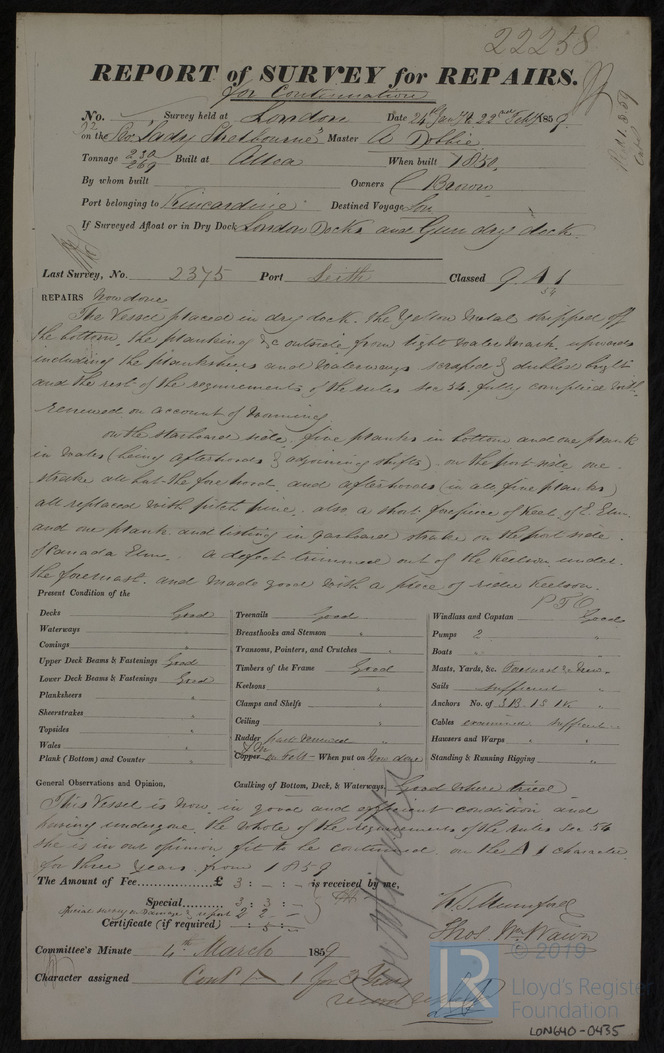 22258
REPORT of SURVEY for REPAIRS.
for Continuation
No. Survey held at London Date 24th Jany to 22nd Feby 1859.
on the Bq "Lady Shelbourne" Master A Dobbie
Tonnage 230 269 Built at Alloa When built 1850.
By whom built Owners C Brown
Port belonging to Kincardine Destined Voyage
If Surveyed Afloat or in Dry Dock London Docks and Gun dry dock.
Last Survey, No. 2375 Port Leith Classed 9 A 1
54
REPAIRS Now done
The Vessel placed in dry dock. the Yellow Metal stripped off
the bottom, the planking &c outside, from light water mark, upwards
including the planksheers and Waterways scraped & dubbed bright
and the rest of the requirements of the rules sec 54. fully complied with.
renewed on account of
on the starboard side, five planks in bottom and one plank
in wales (being afterhoods & adjoining shifts). on the port side one
strake all but the fore hood, and afterhoods (in all five planks)
all replaced with pitch pine. also a short forepiece of Keel of E Elm.
and one plank and listing in garboard strake on the port side
of Canada Elm. a defect trimmed out of the Keelson under
the foremast. and made good with a piece of rider Keelson.
P T O
Present Condition of the
Decks Good
Waterways "
Comings "
Upper Deck Beams & Fastenings Good
Lower Deck Beams & Fastenings Good
Planksheers "
Sheerstrakes "
Topsides "
Wales "
Plank (Bottom) and Counter "
Treenails Good
Breasthooks and Stemson "
Transoms, Pointers, and Crutches "
Timbers of the Frame Good
Keelsons "
Clamps and Shelfs "
Ceiling "
Rudder part renewed
Y M
Copper on felt - When put on Now done
Windlass and Capstan Good
Pumps 2 "
Boats "
Masts, Yards, &c.
Sails sufficient "
Anchors No. of 3 B. 1 S. 1 K "
Cables examined sufficient
Hawsers and Warps "
Standing & Running Rigging "
General Observations and Opinion, Caulking of Bottom, Deck, & Waterways, Good where tried
This Vessel is now in good and efficient condition and
having undergone the whole of the requirements of the rules sec 54
she is in our opinion fit to be continued on the A 1 character
for three years from 1859
The Amount of Fee £ 3 : - : - is received by me,
Special 3 : 3 : -
Special survey on damage & report 2 2 -
Certificate (if required) - : 5 : -
W. S. Mumford
Thos Wm Wawn
Committee's Minute 4th March 1859
Character assigned Contd A 1 for 3 Years
© 2019
LR
Lloyd's Register
Foundation
LON640-0435